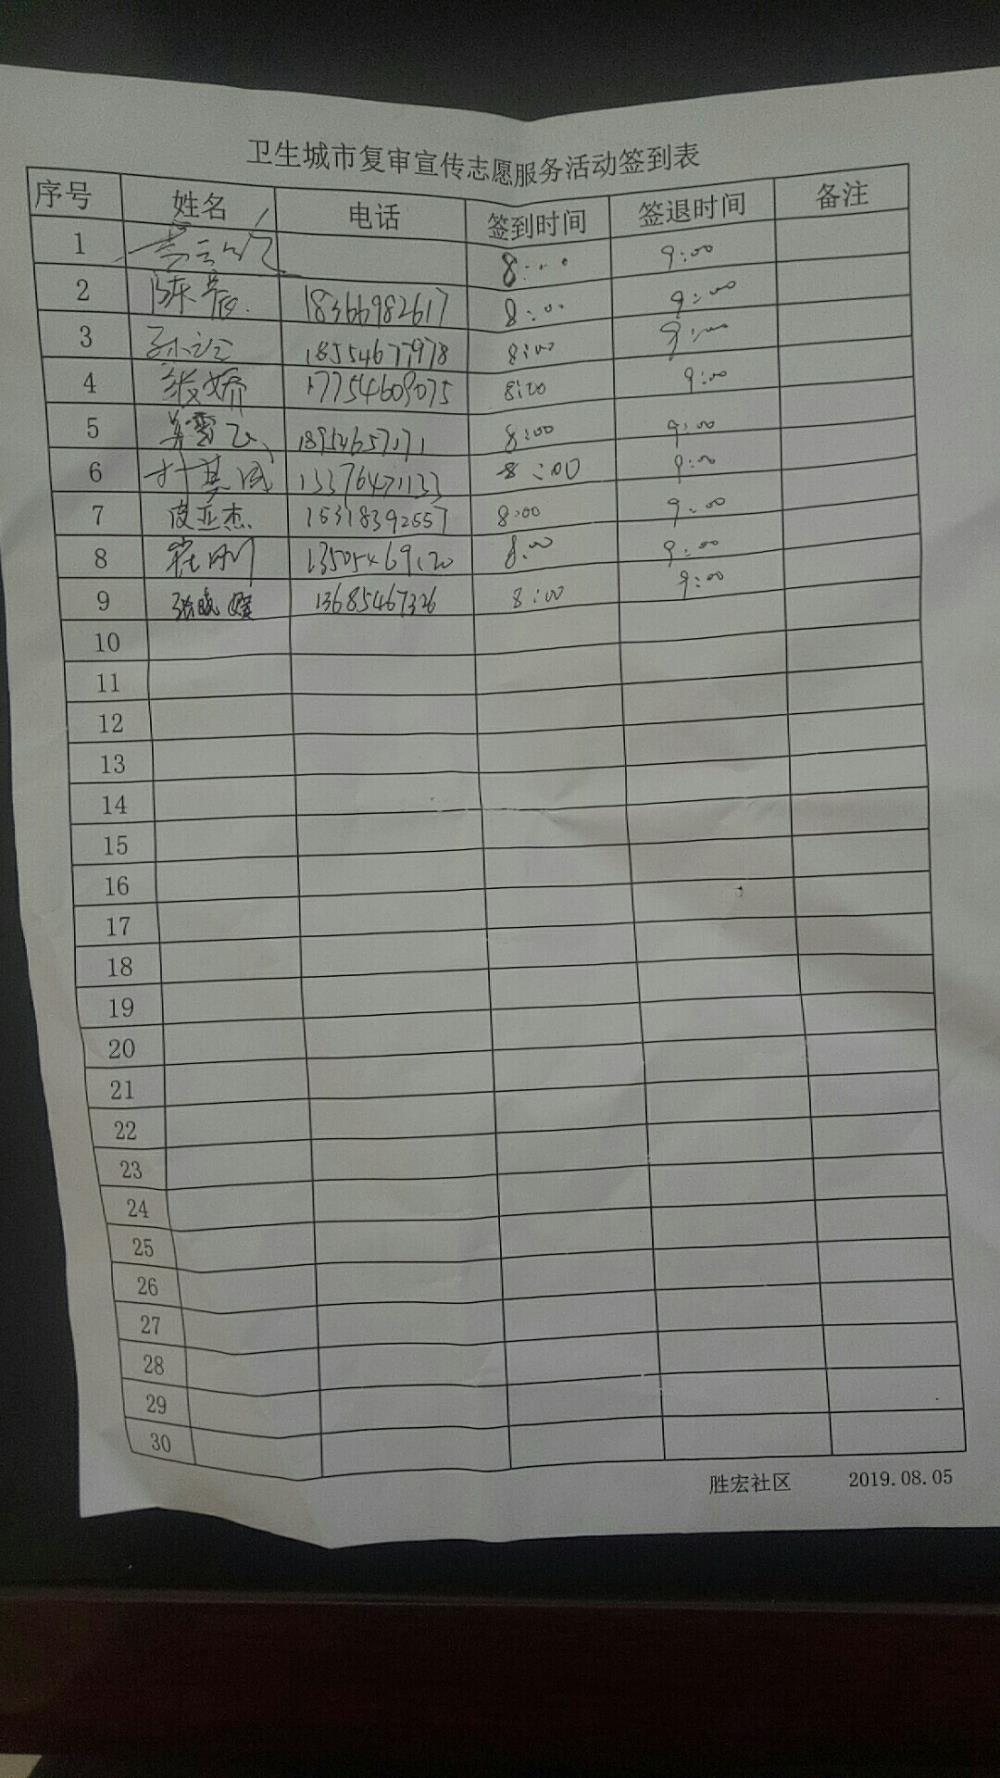 卫生城市复审宣传志愿服务活动签到表
序号 姓名 电话 签到时间 签退时间 备注
1 8:00 9:00
2 陈 18366982617 8:00 9:00
3 孙 18554677978 8:00 9:00
4 张娇 17754609075 8:00 9:00
5 18954657171 8:00 9:00
6 13376471133 8:00 9:00
7 皮亚杰 15318392557 8:00 9:00
8 崔刚 13505469120 8:00 9:00
9 张晓 13685467326 8:00 9:00
10
11
12
13
14
15
16
17
18
19
20
21
22
23
24
25
26
27
28
29
30
胜宏社区 2019.08.05